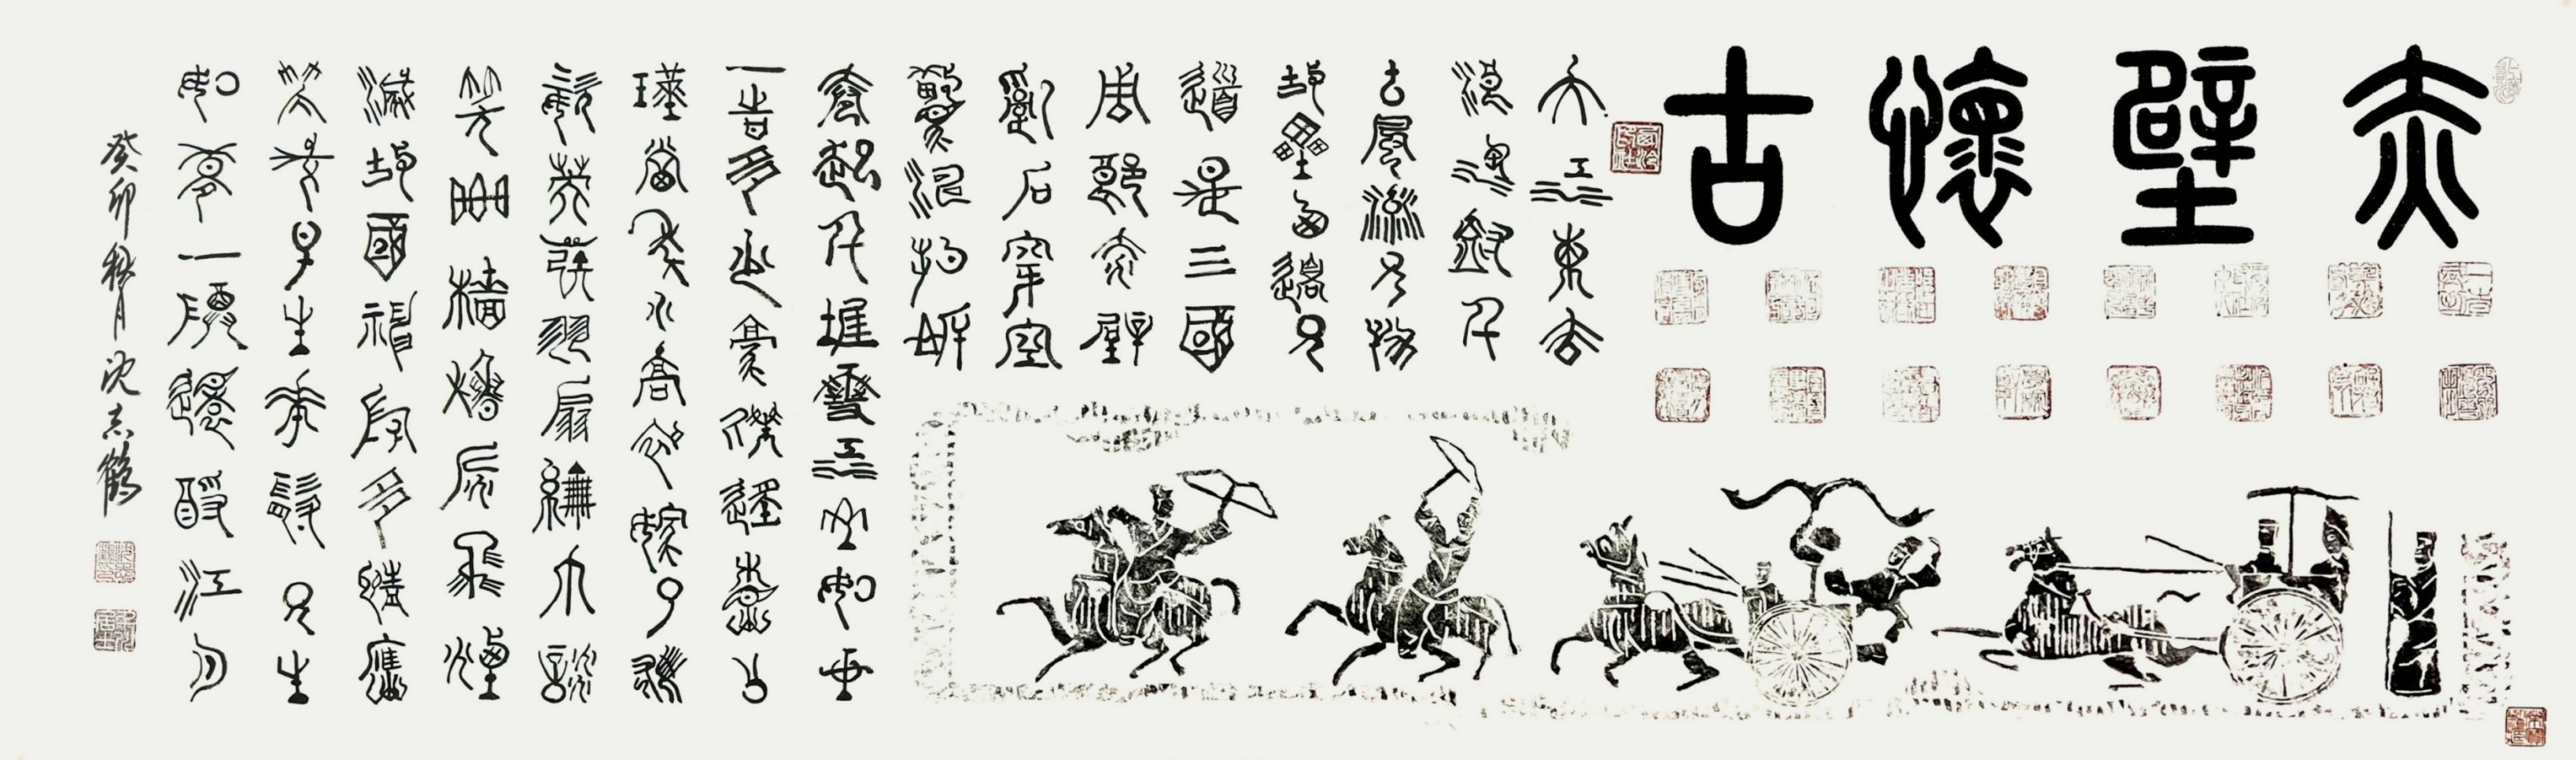 赤壁懷古
大江東去
浪淘盡千
古風流人物
故壘西邊人
道是三國
周郎赤壁
亂石穿空
驚濤拍岸
卷起千堆雪江山如畫
一時多少豪傑遙想公
瑾當年小喬初嫁了雄
姿英發羽扇綸巾談
笑間檣櫓灰飛煙
滅故國神游多情應
笑我早生華髮人生
如夢一尊還酹江月
癸卯秋月沈志鶴